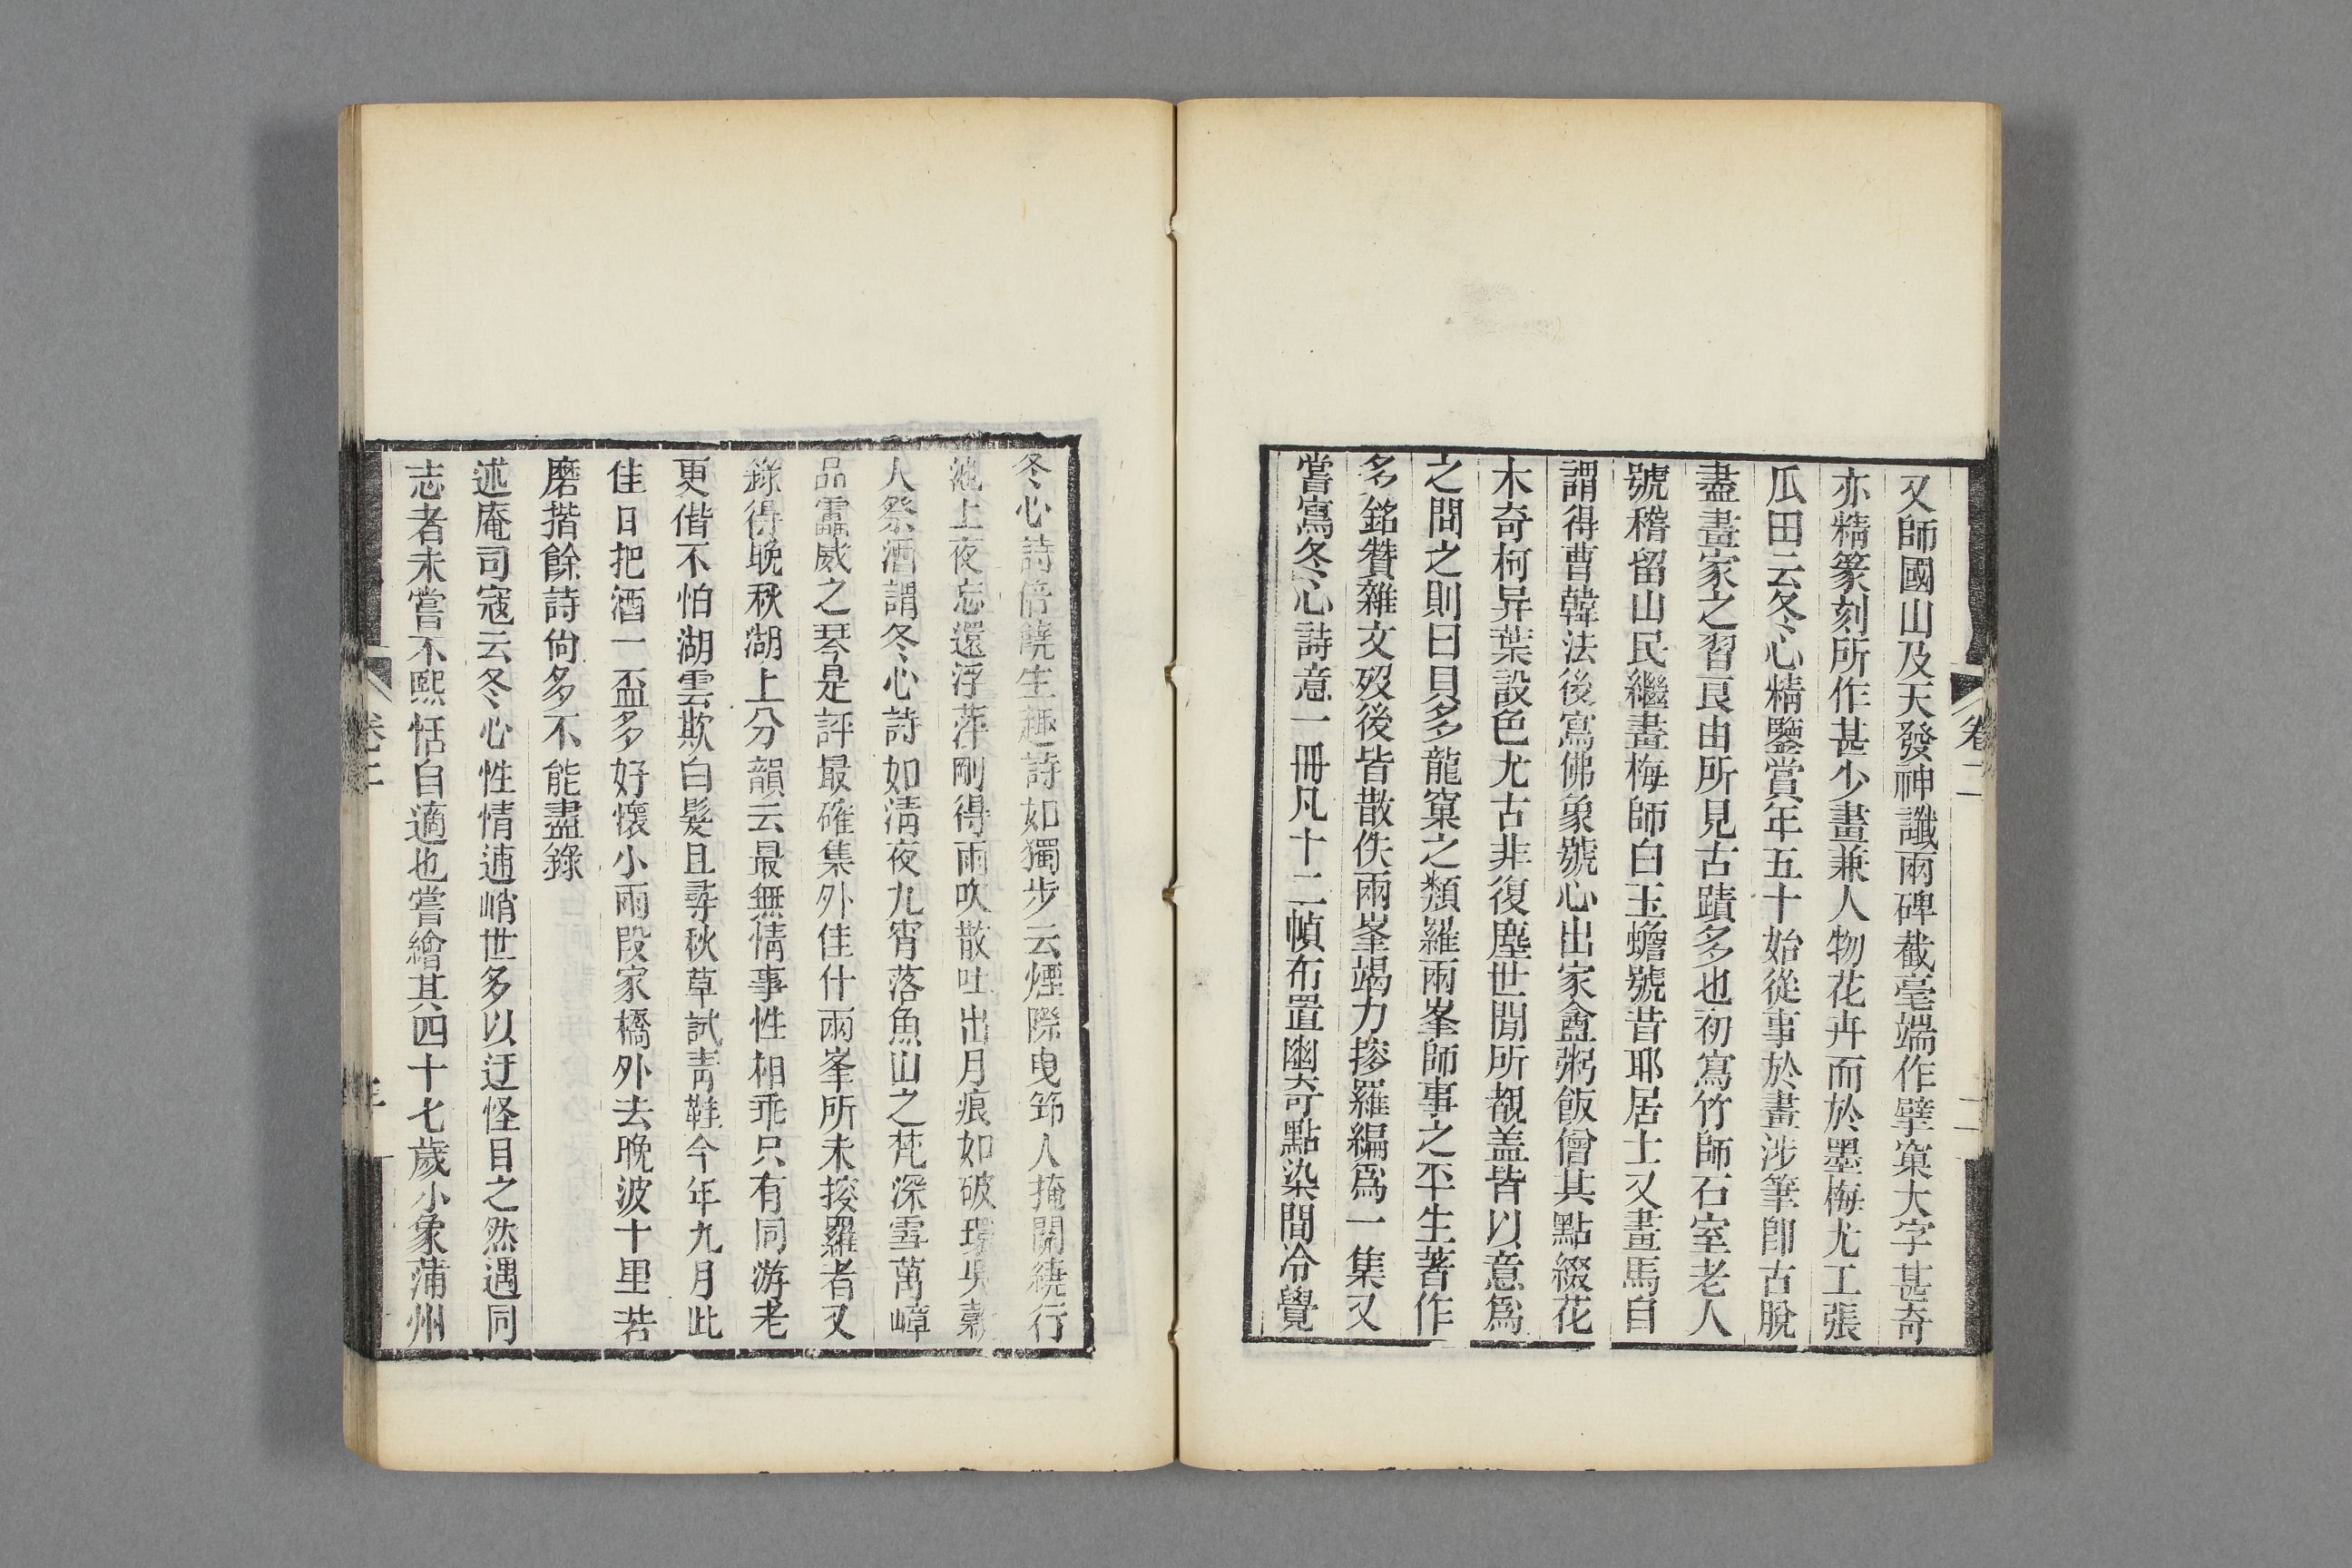 又師國山及天發神讖兩碑截毫端作擘窠大字甚奇
亦精篆刻所作甚少畫兼人物花卉而於墨梅尤工張
瓜田云冬心精鑒賞年五十始從事於畫涉筆卽古脫
盡畫家之習良由所見古蹟多也初寫竹師石室老人
號稽留山民繼畫梅師白玉蟾號昔耶居士又畫馬自
謂得曹韓法後寫佛象號心出家盦粥飯僧其點綴花
木奇柯异葉設色尤古非復塵世閒所覩盖皆以意爲
之問之則曰貝多龍窠之類羅兩峯師事之平生著作
多銘贊雜文歿後皆散佚兩峯竭力搜羅編爲一集又
嘗寫冬心詩意一冊凡十二幀布置幽奇點染閒冷覺
卷二
二
冬心詩倍饒生趣詩如獨步云煙際曳筇人掩關繞行
池上夜忘還浮萍剛得雨吹散吐出月痕如破環吳穀
人祭酒謂冬心詩如淸夜九宵落魚山之梵深雪萬嶂
品靁威之琴是評最確集外佳什兩峯所未搜羅者又
錄得晚秋湖上分韻云最無情事性相乖只有同游老
更偕不怕湖雲欺白髮且尋秋草試靑鞋今年九月此
佳日把酒一盃多好懷小雨段家橋外去晚波十里若
磨揩餘詩尙多不能盡錄
述庵司寇云冬心性情逋峭世多以迂怪目之然遇同
志者未嘗不熙恬自適也嘗繪其四十七歲小象蒲州
卷二
三